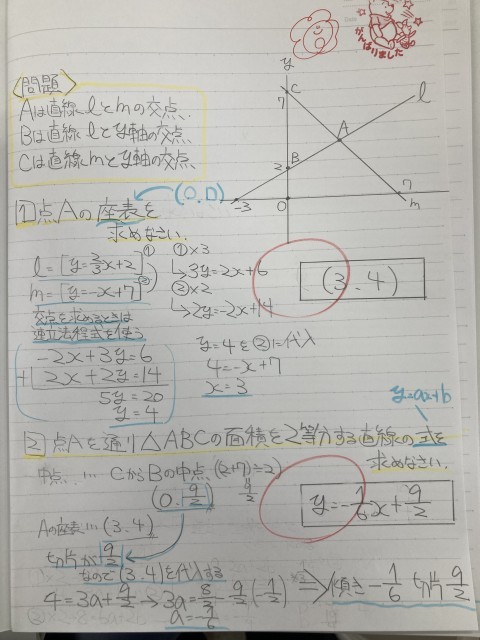 がんばりました
〈問題〉
Aは直線lとmの交点、
Bは直線lとy軸の交点
Cは直線mとy軸の交点
y
C
7
l
A
B
2
-3
O
7
m
(0,0)
1 点Aの座表を
求めなさい。
l=[y=2/3x+2]①
m=[y=-x+7]②
交点を求めるときは
連立法程式を使う
①×3
↳3y=2x+6
②×2
↳2y=-2x+14
(3.4)
-2x+3y=6
+) 2x+2y=14
5y=20
y=4
y=4を②に代入
4=-x+7
x=3
y=ax+b
2 点Aを通り△ABCの面積を2等分する直線の式を
求めなさい。
中点… CからBの中点 (2+7)÷2)
(0.9/2)
y=-1/6x+9/2
Aの座表…(3.4)
切片が9/2
なので(3.4)を代入する
4=3a+9/2→3a=8/2-9/2(-1/2)
a=-1/6
⇒傾き-1/6 切片9/2